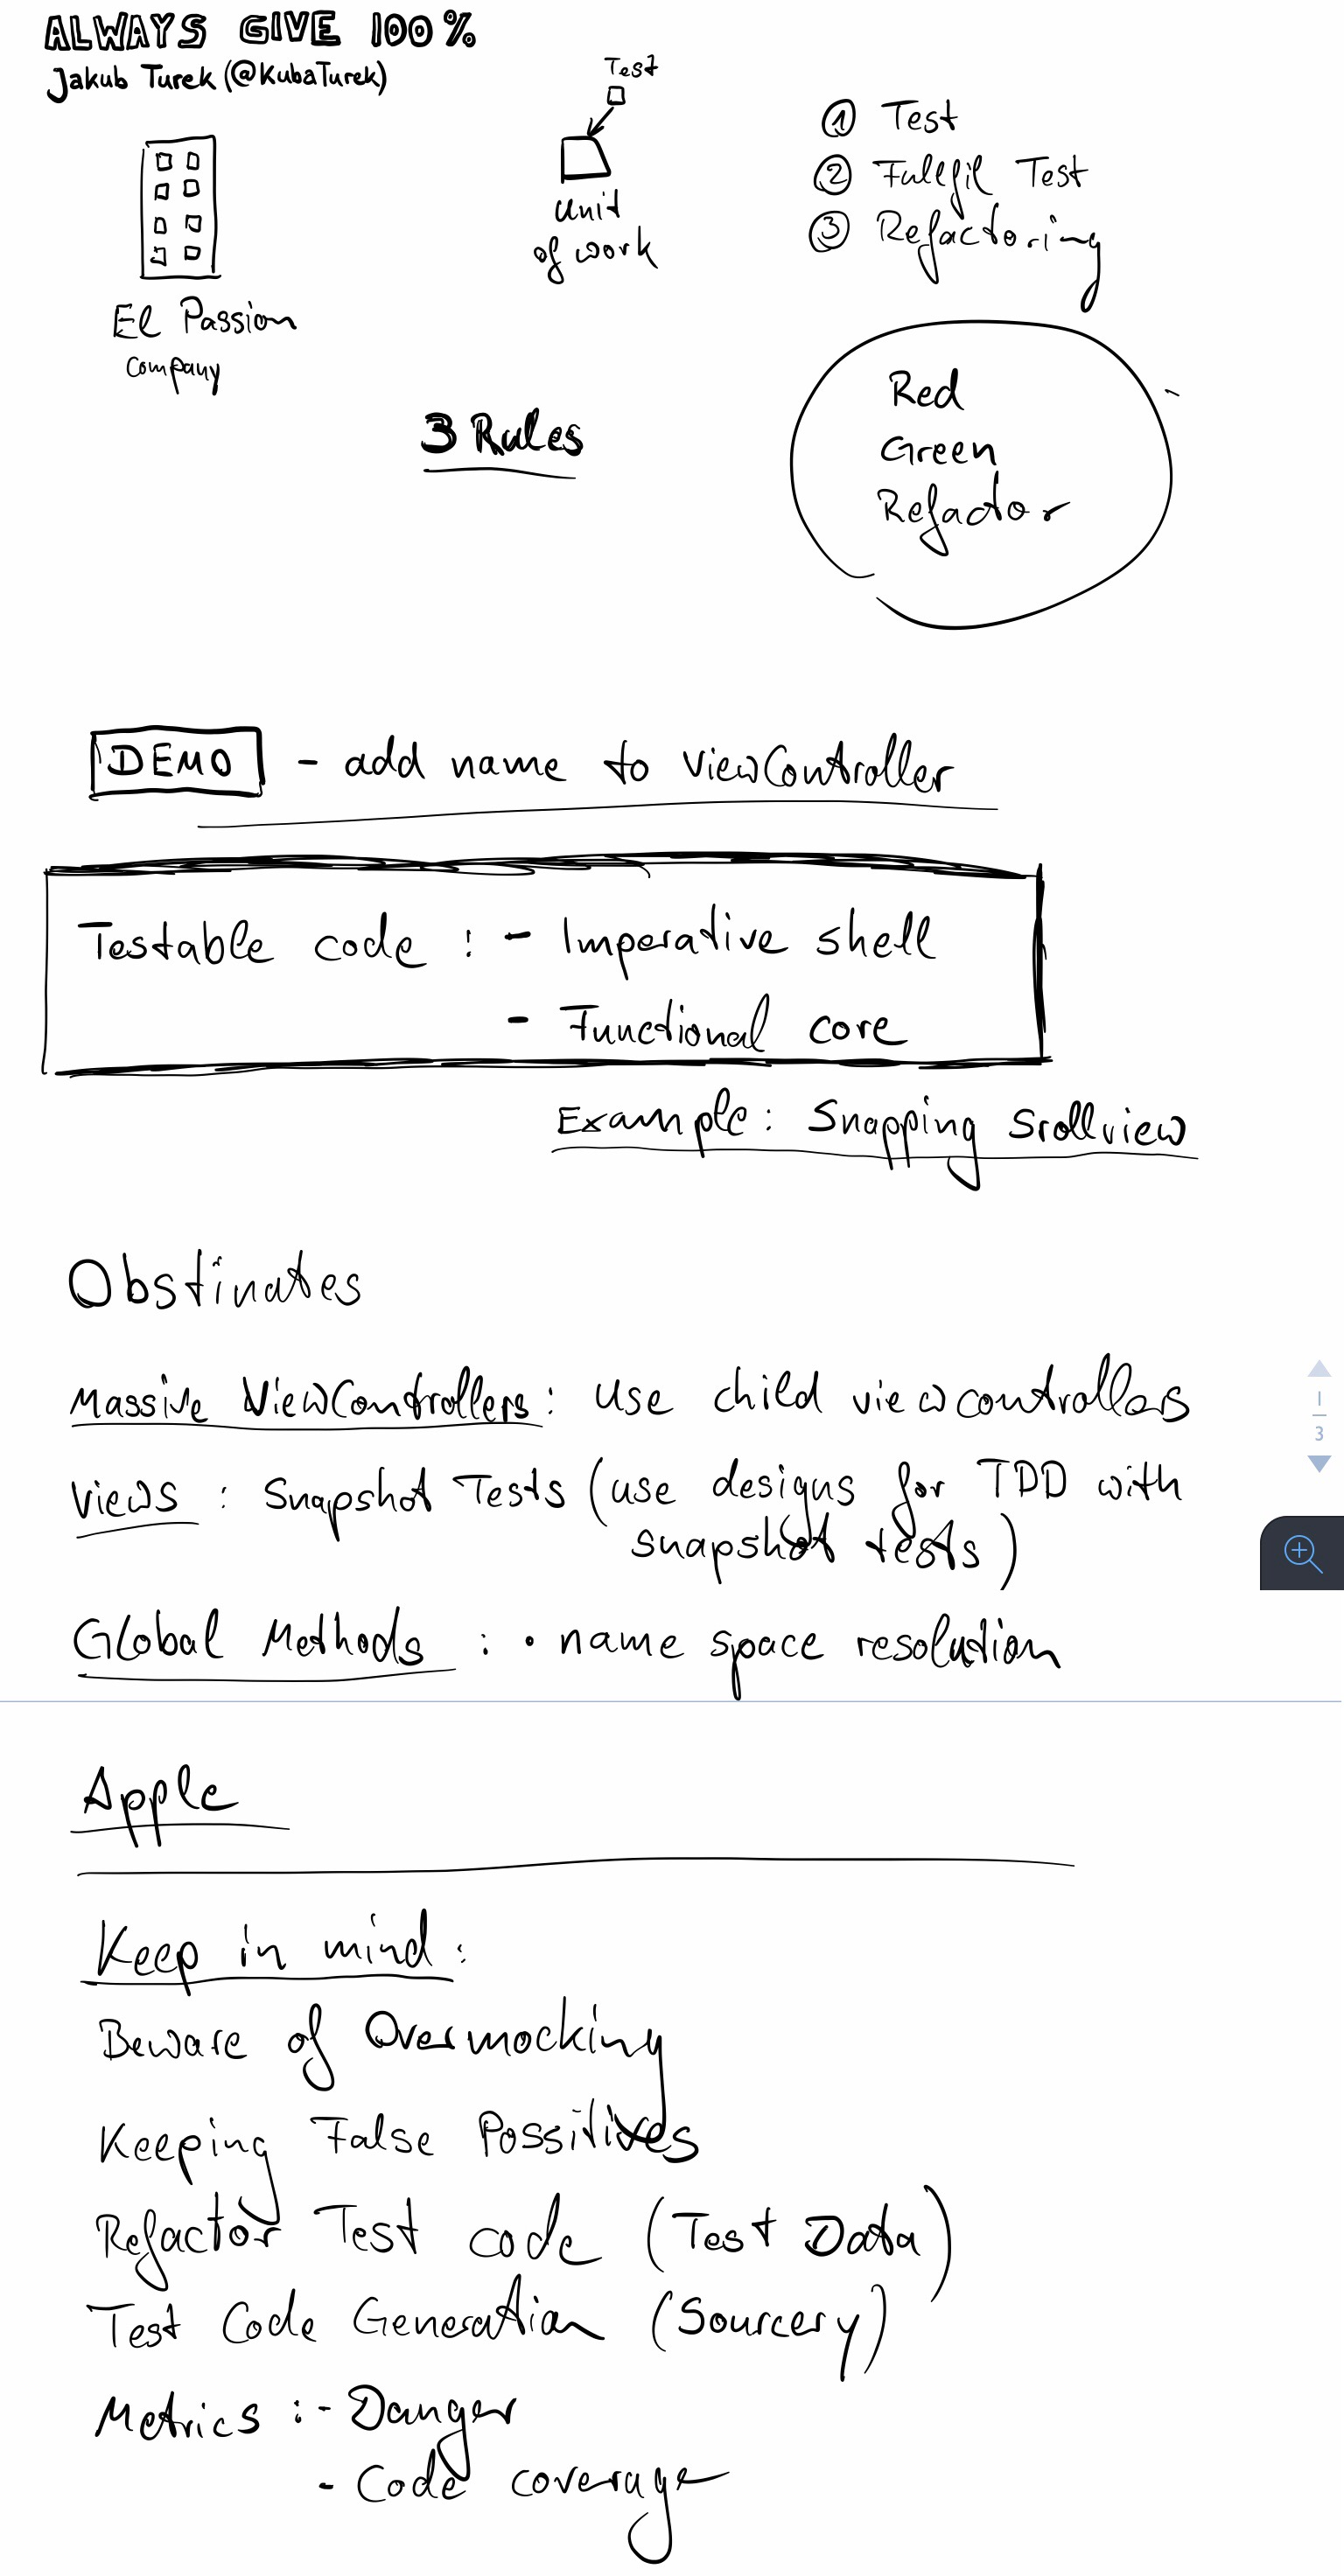 ALWAYS GIVE 100%
Jakub Turek (@KubaTurek)
El Passion
Company
Test
Unit
of work
① Test
② Fullfil Test
③ Refactoring
3 Rules
Red
Green
Refactor
DEMO - add name to ViewController
Testable code : - Imperative shell
- Functional core
Example: Snapping Srollview
Obstinates
Massive ViewControllers: use child viewcontrollers
Views : Snapshot Tests (use designs for TDD with
snapshot tests)
Global Methods : • name space resolution
1
3
Apple
Keep in mind:
Beware of Overmocking
Keeping False Possitives
Refactor Test code (Test Data)
Test Code Generation (Sourcery)
Metrics : - Danger
- Code coverage